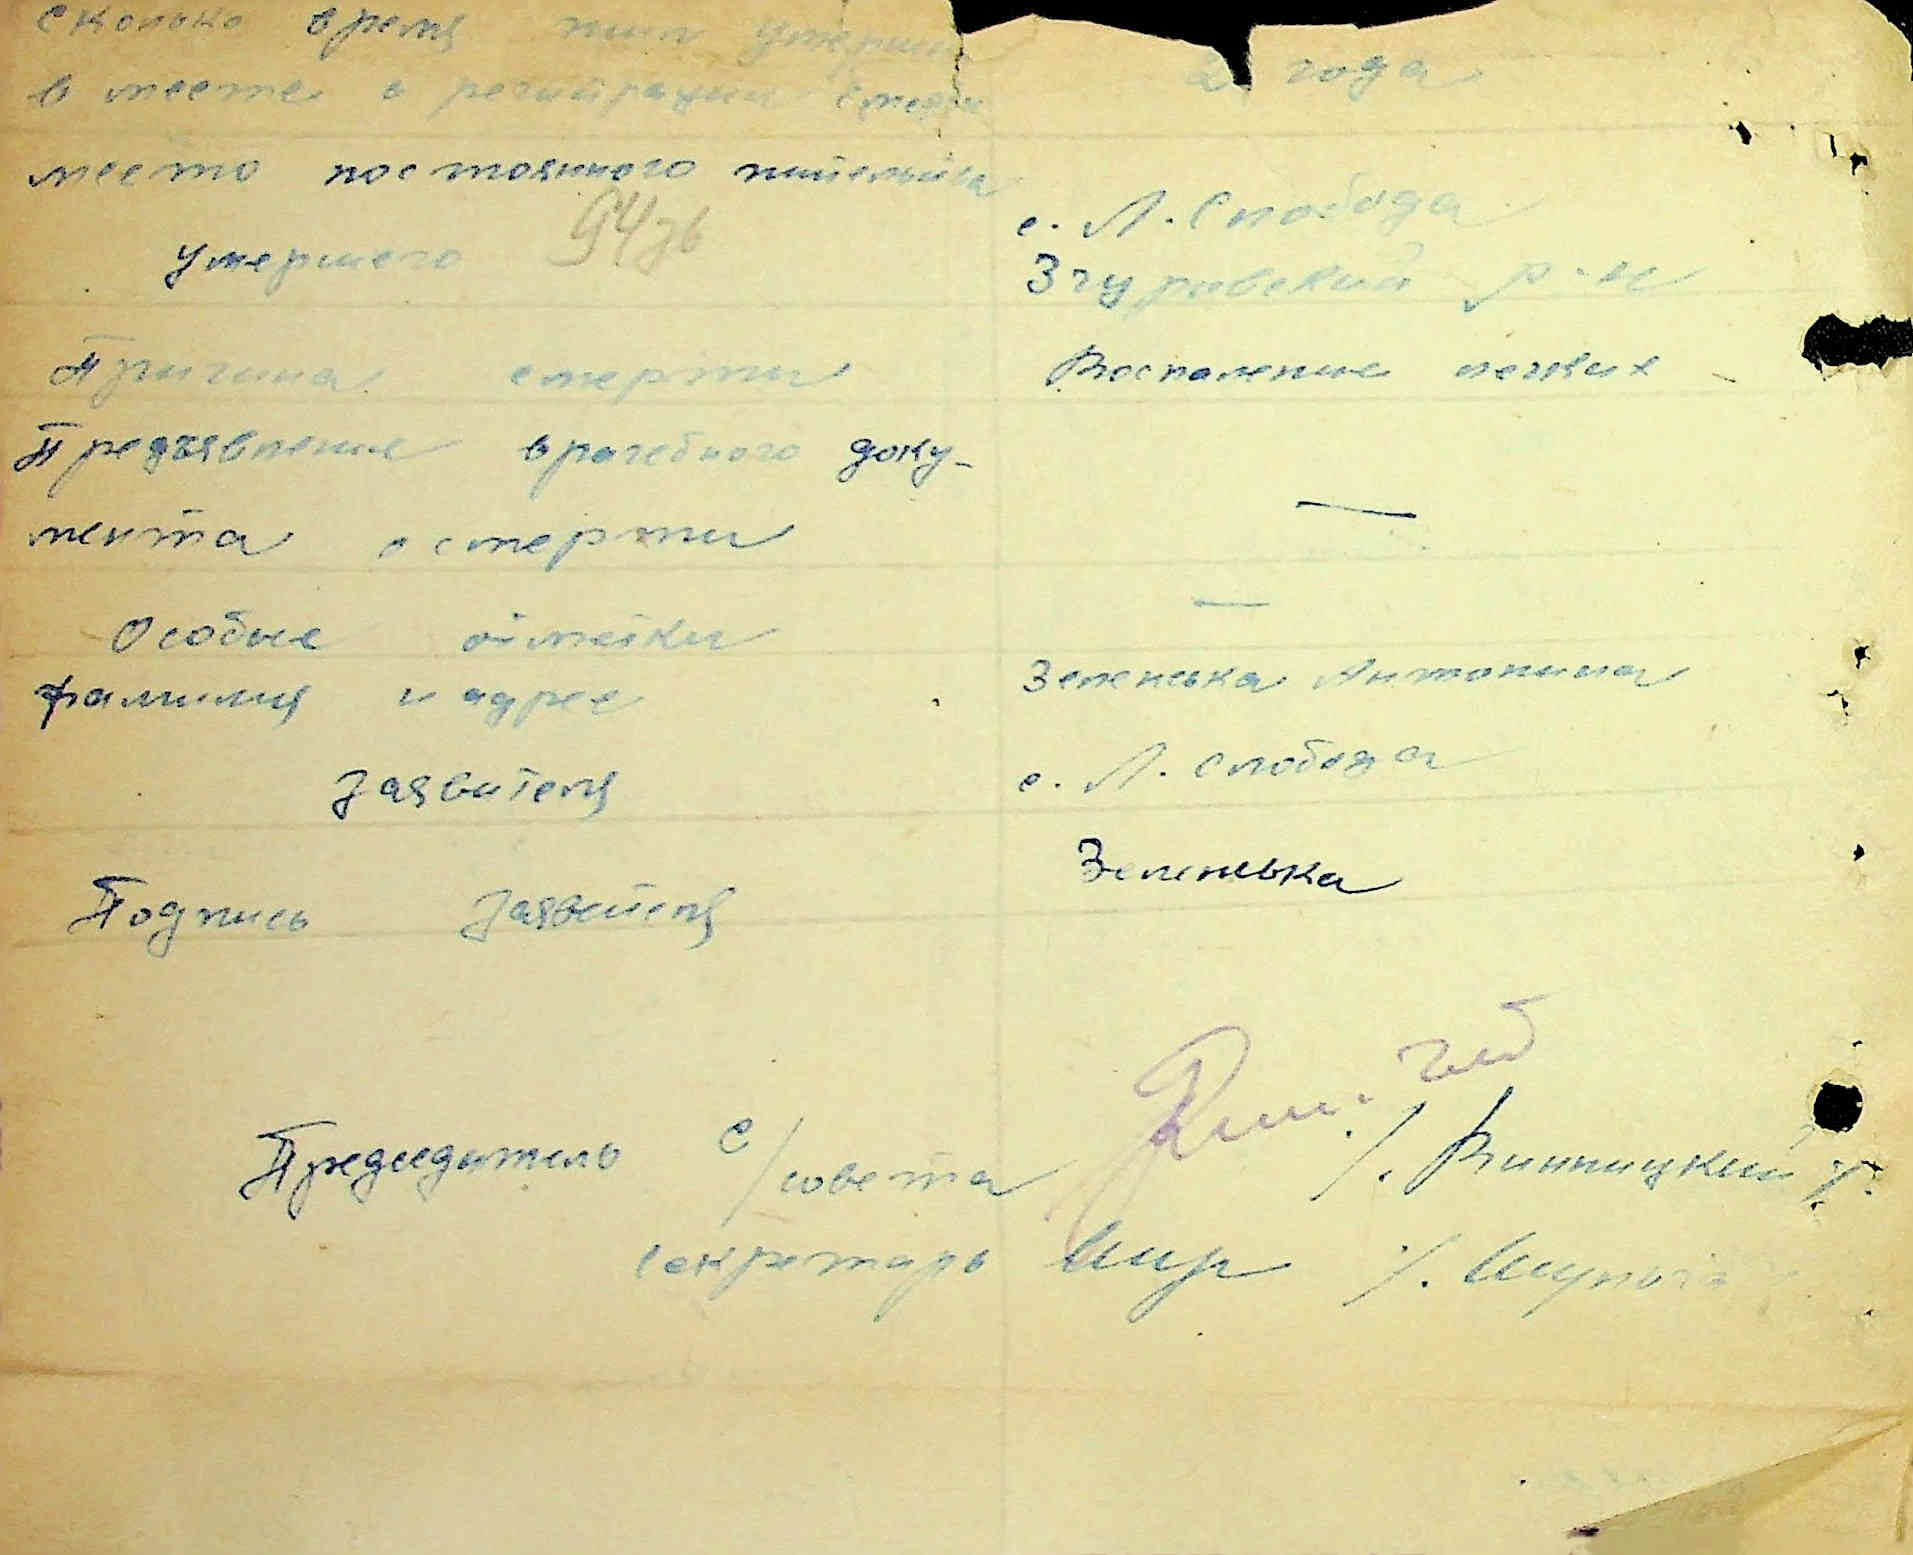 сколько время жил умерший
2 года
в месте о регистрации смерти
место постоянного жительства
умершего
94зв
с. Л. Слобода
Згуровский р-н
Причина смерти
Воспаление легких
Предъявление врачебного доку-
мента о смерти
—
Особые отметки
—
фамилия и адрес
заявителя
Зеленська Антонина
с. Л. Слобода
Подпись заявителя
Зеленська
Председатель с/совета
/. Винницкий
секретарь